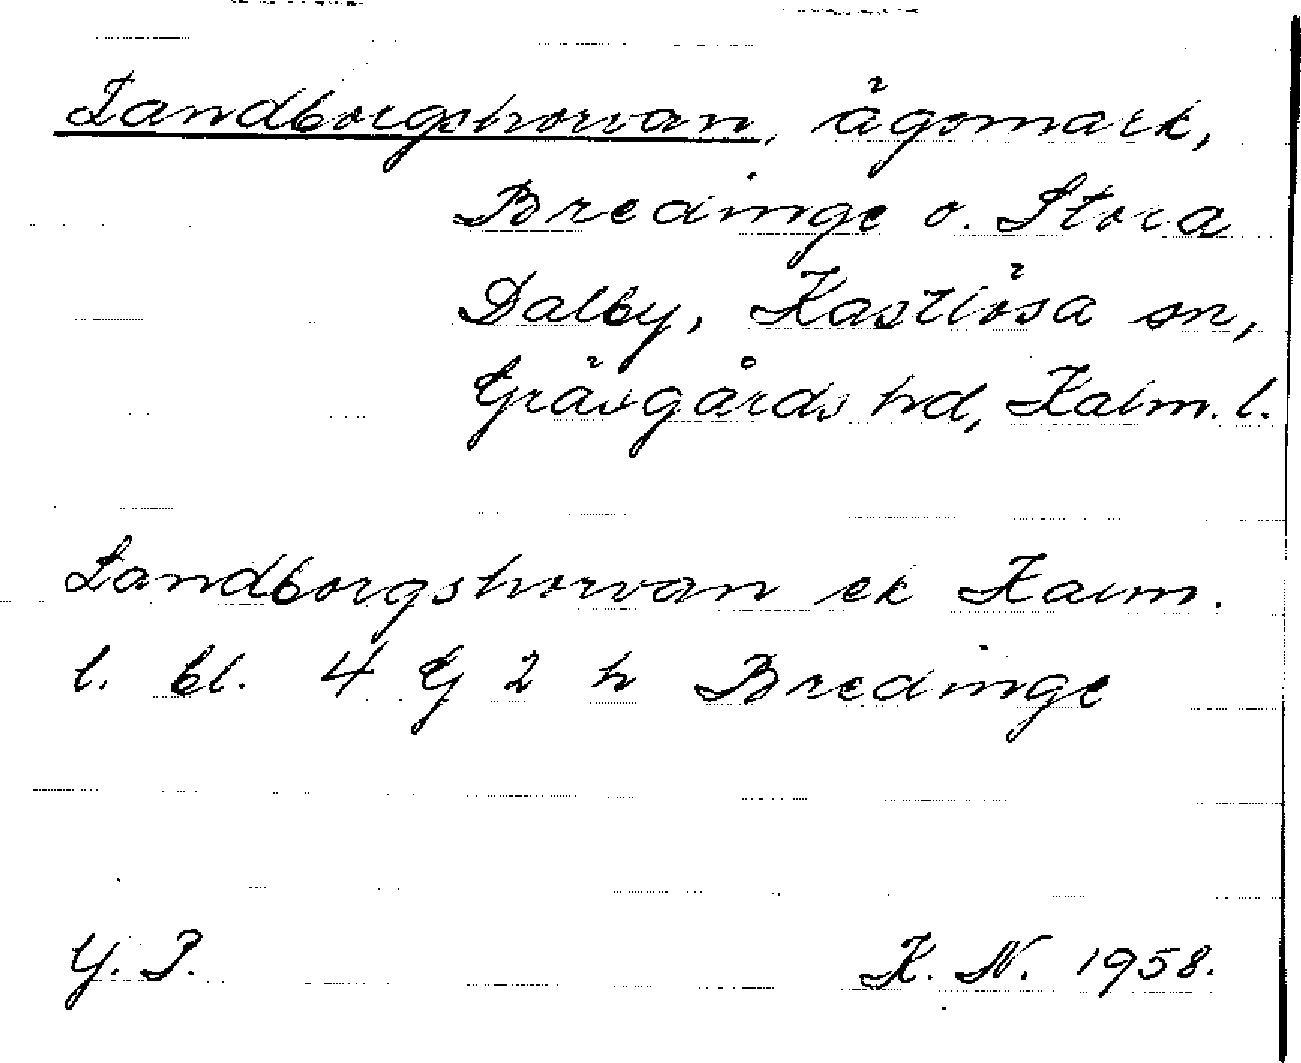 Landborgshorvan, ägomark,
Bredinge o. Stora
Dalby, Kastlösa sn,
Gräsgårds hd, Kalm. l.
Landborgshorvan ek Kalm.
l. bl. 4 G 2 h Bredinge
G. P. K. N. 1958.